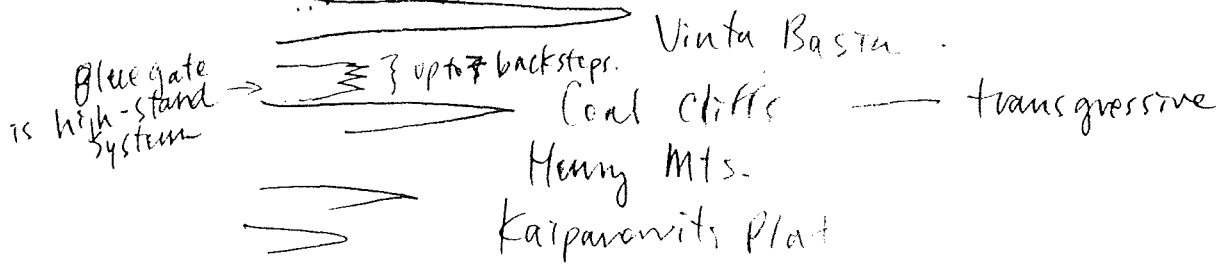 Uinta Basin .
Blue gate
is high-stand
system
} up to 7 backsteps.
Coal Cliffs — transgressive
Henry Mts.
Kaiparowits Plat